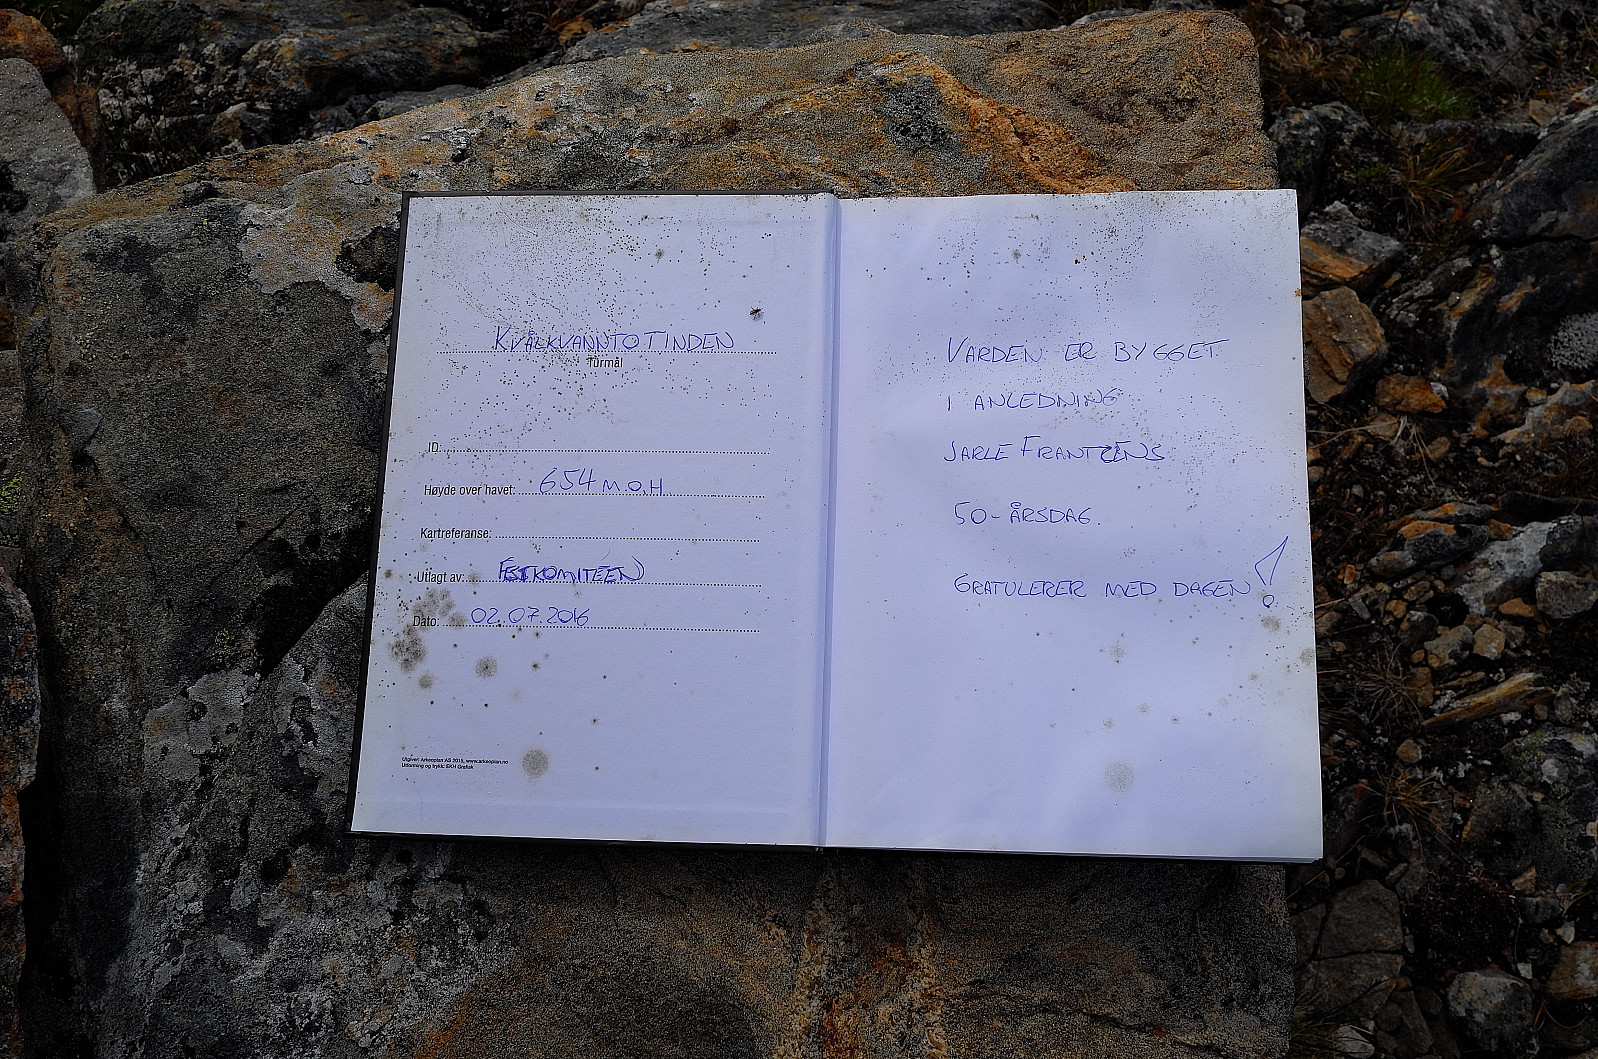 KVÅLKVANNTOTINDEN
Turmål
ID:
Høyde over havet: 654 M.O.H
Kartreferanse:
Utlagt av: FESTKOMITÉEN
Dato: 02.07.2016
Utgiver: Arkeoplan AS 2015, www.arkeoplan.no
Utforming og trykk: EKH Grafisk
VARDEN ER BYGGET
I ANLEDNING
JARLE FRANTZENS
50-ÅRSDAG.
GRATULERER MED DAGEN!